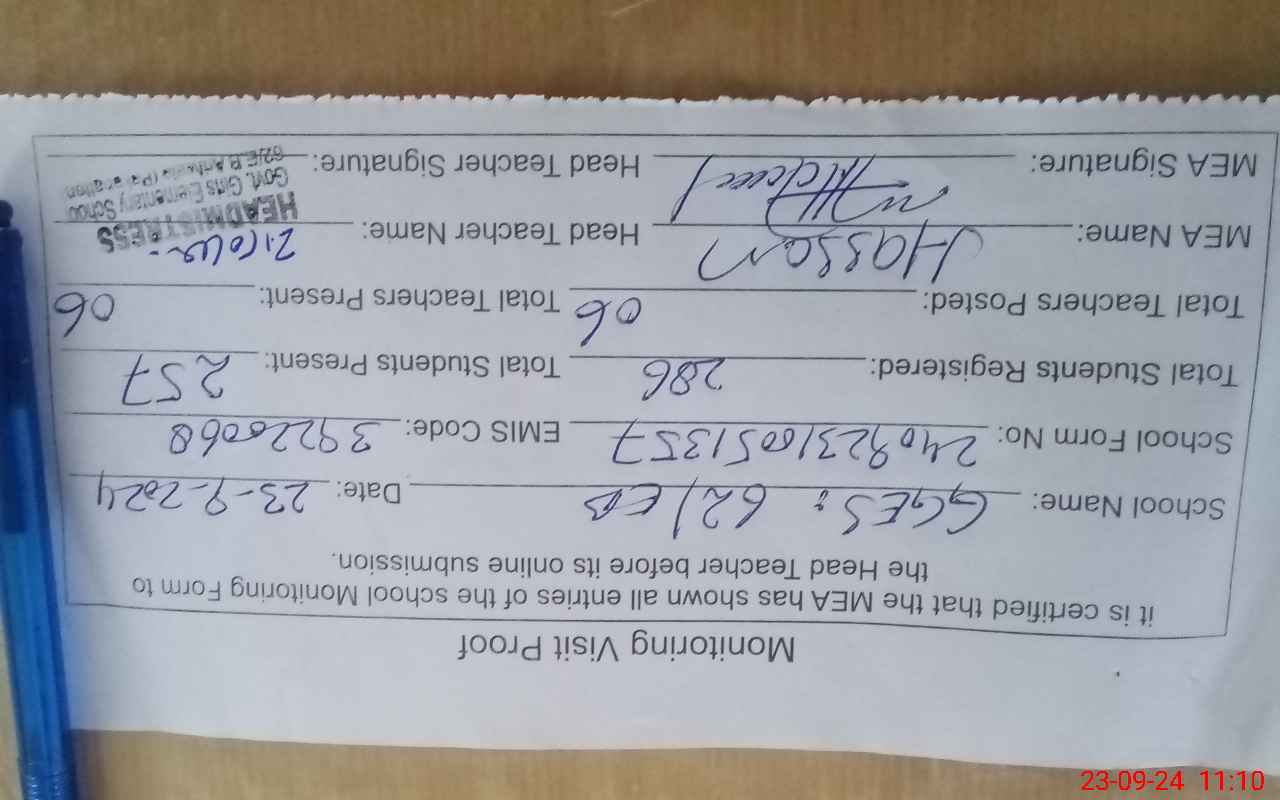 Monitoring Visit Proof
it is certified that the MEA has shown all entries of the school Monitoring Form to
the Head Teacher before its online submission.
School Name: GGES: 62/EB Date: 23-9-2024
School Form No: 24092310051357 EMIS Code: 39220068
Total Students Registered: 286 Total Students Present: 257
Total Teachers Posted: 06 Total Teachers Present: 06
MEA Name: Hassan Head Teacher Name:
MEA Signature: Head Teacher Signature:
HEADMISTRESS
Govt. Girls Elementary School
62/E.B Arifwala (Pakpattan)
23-09-24 11:10